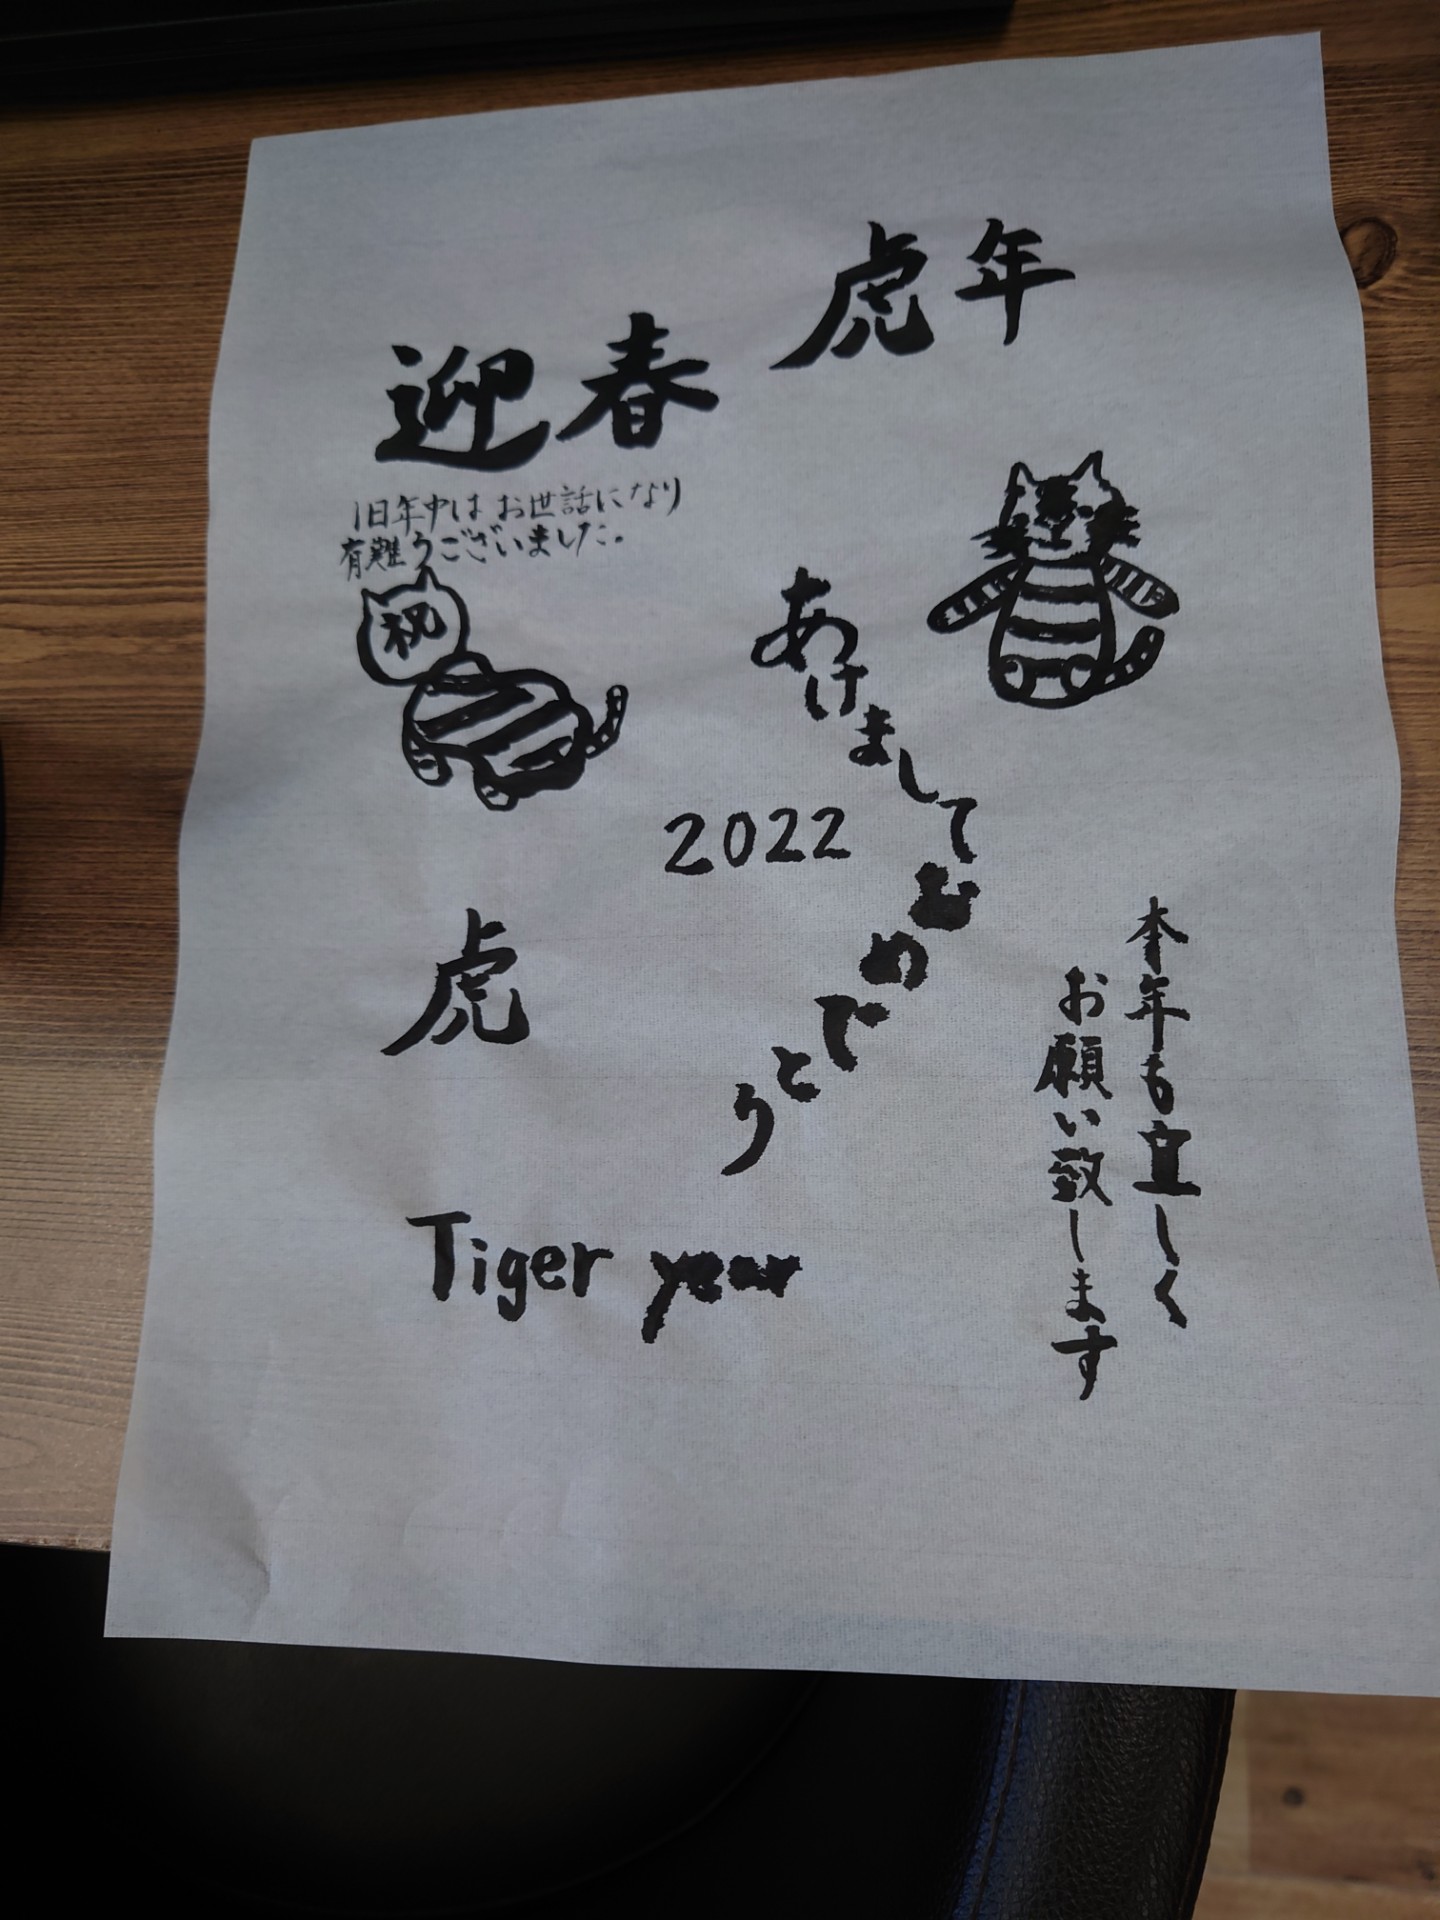 虎年
迎春
旧年中はお世話になり
有難うございました。
祝
あけまして
おめでとう
2022
虎
本年も宜しく
お願い致します
Tiger year